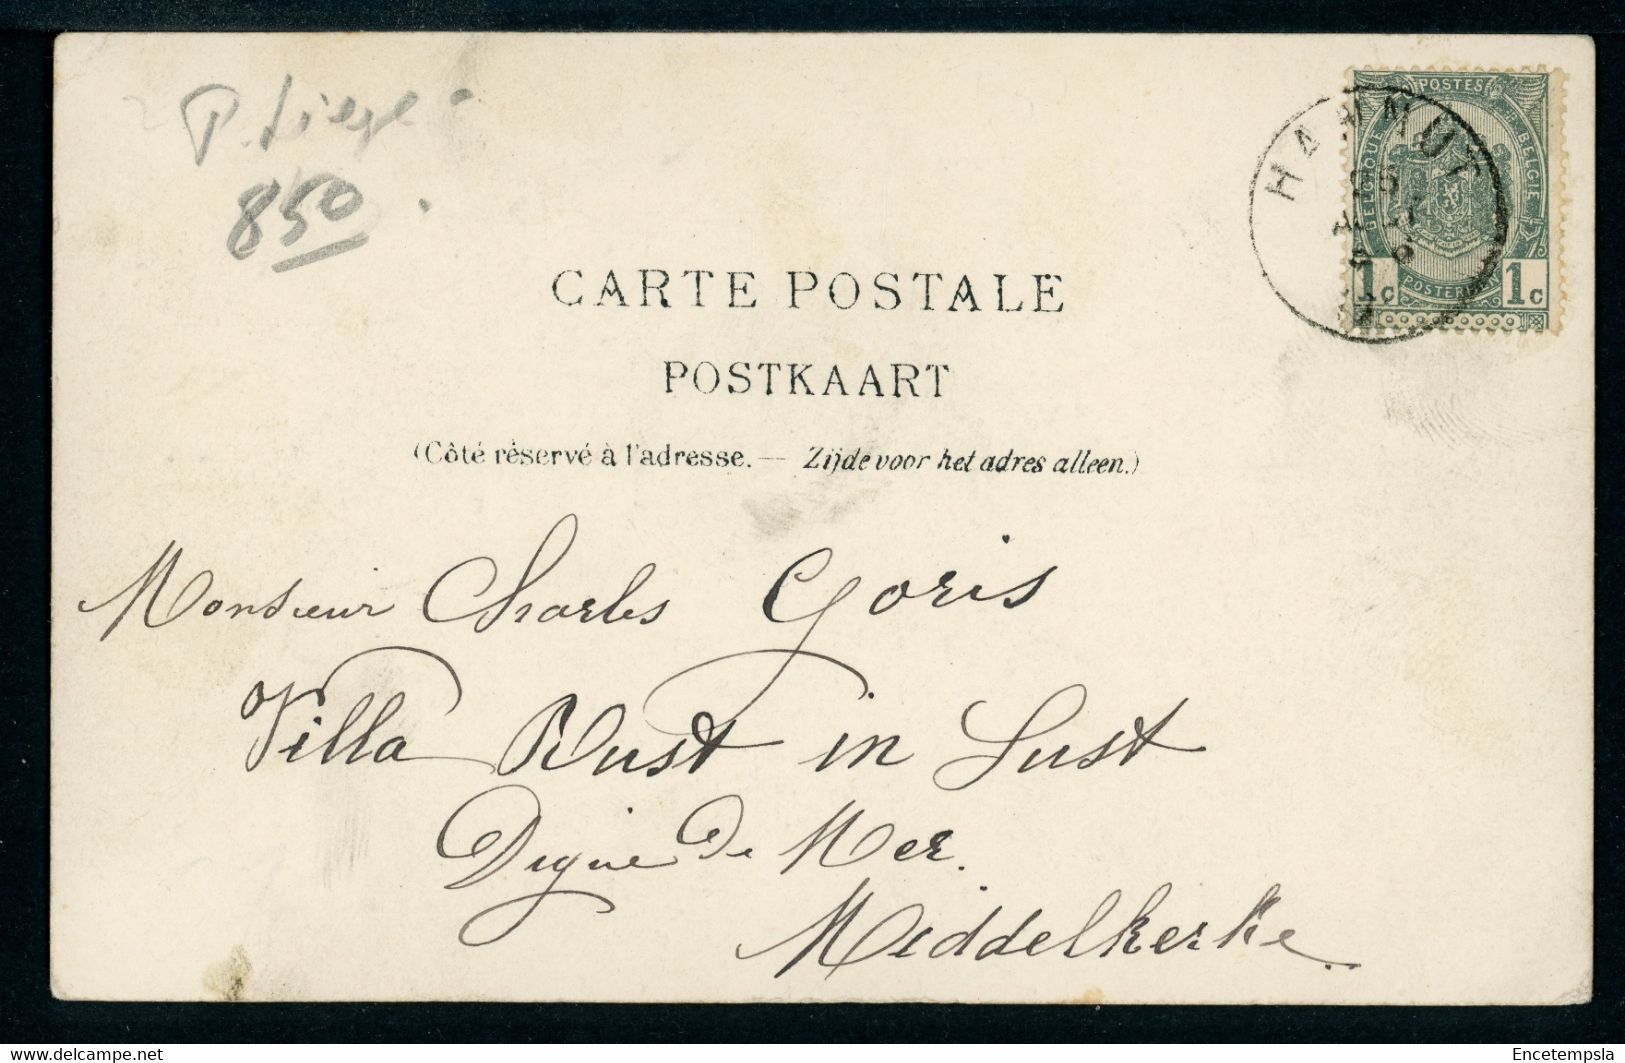 P. Liège
850
HANNUT
POSTES
BELGIQUE
BELGIE
1c
1c
POSTERIJEN
CARTE POSTALE
POSTKAART
(Côté réservé à l'adresse. — Zijde voor het adres alleen.)
Monsieur Charles Goris
Villa Rust in Lust
Digue de Mer.
Middelkerke
Encetempsla